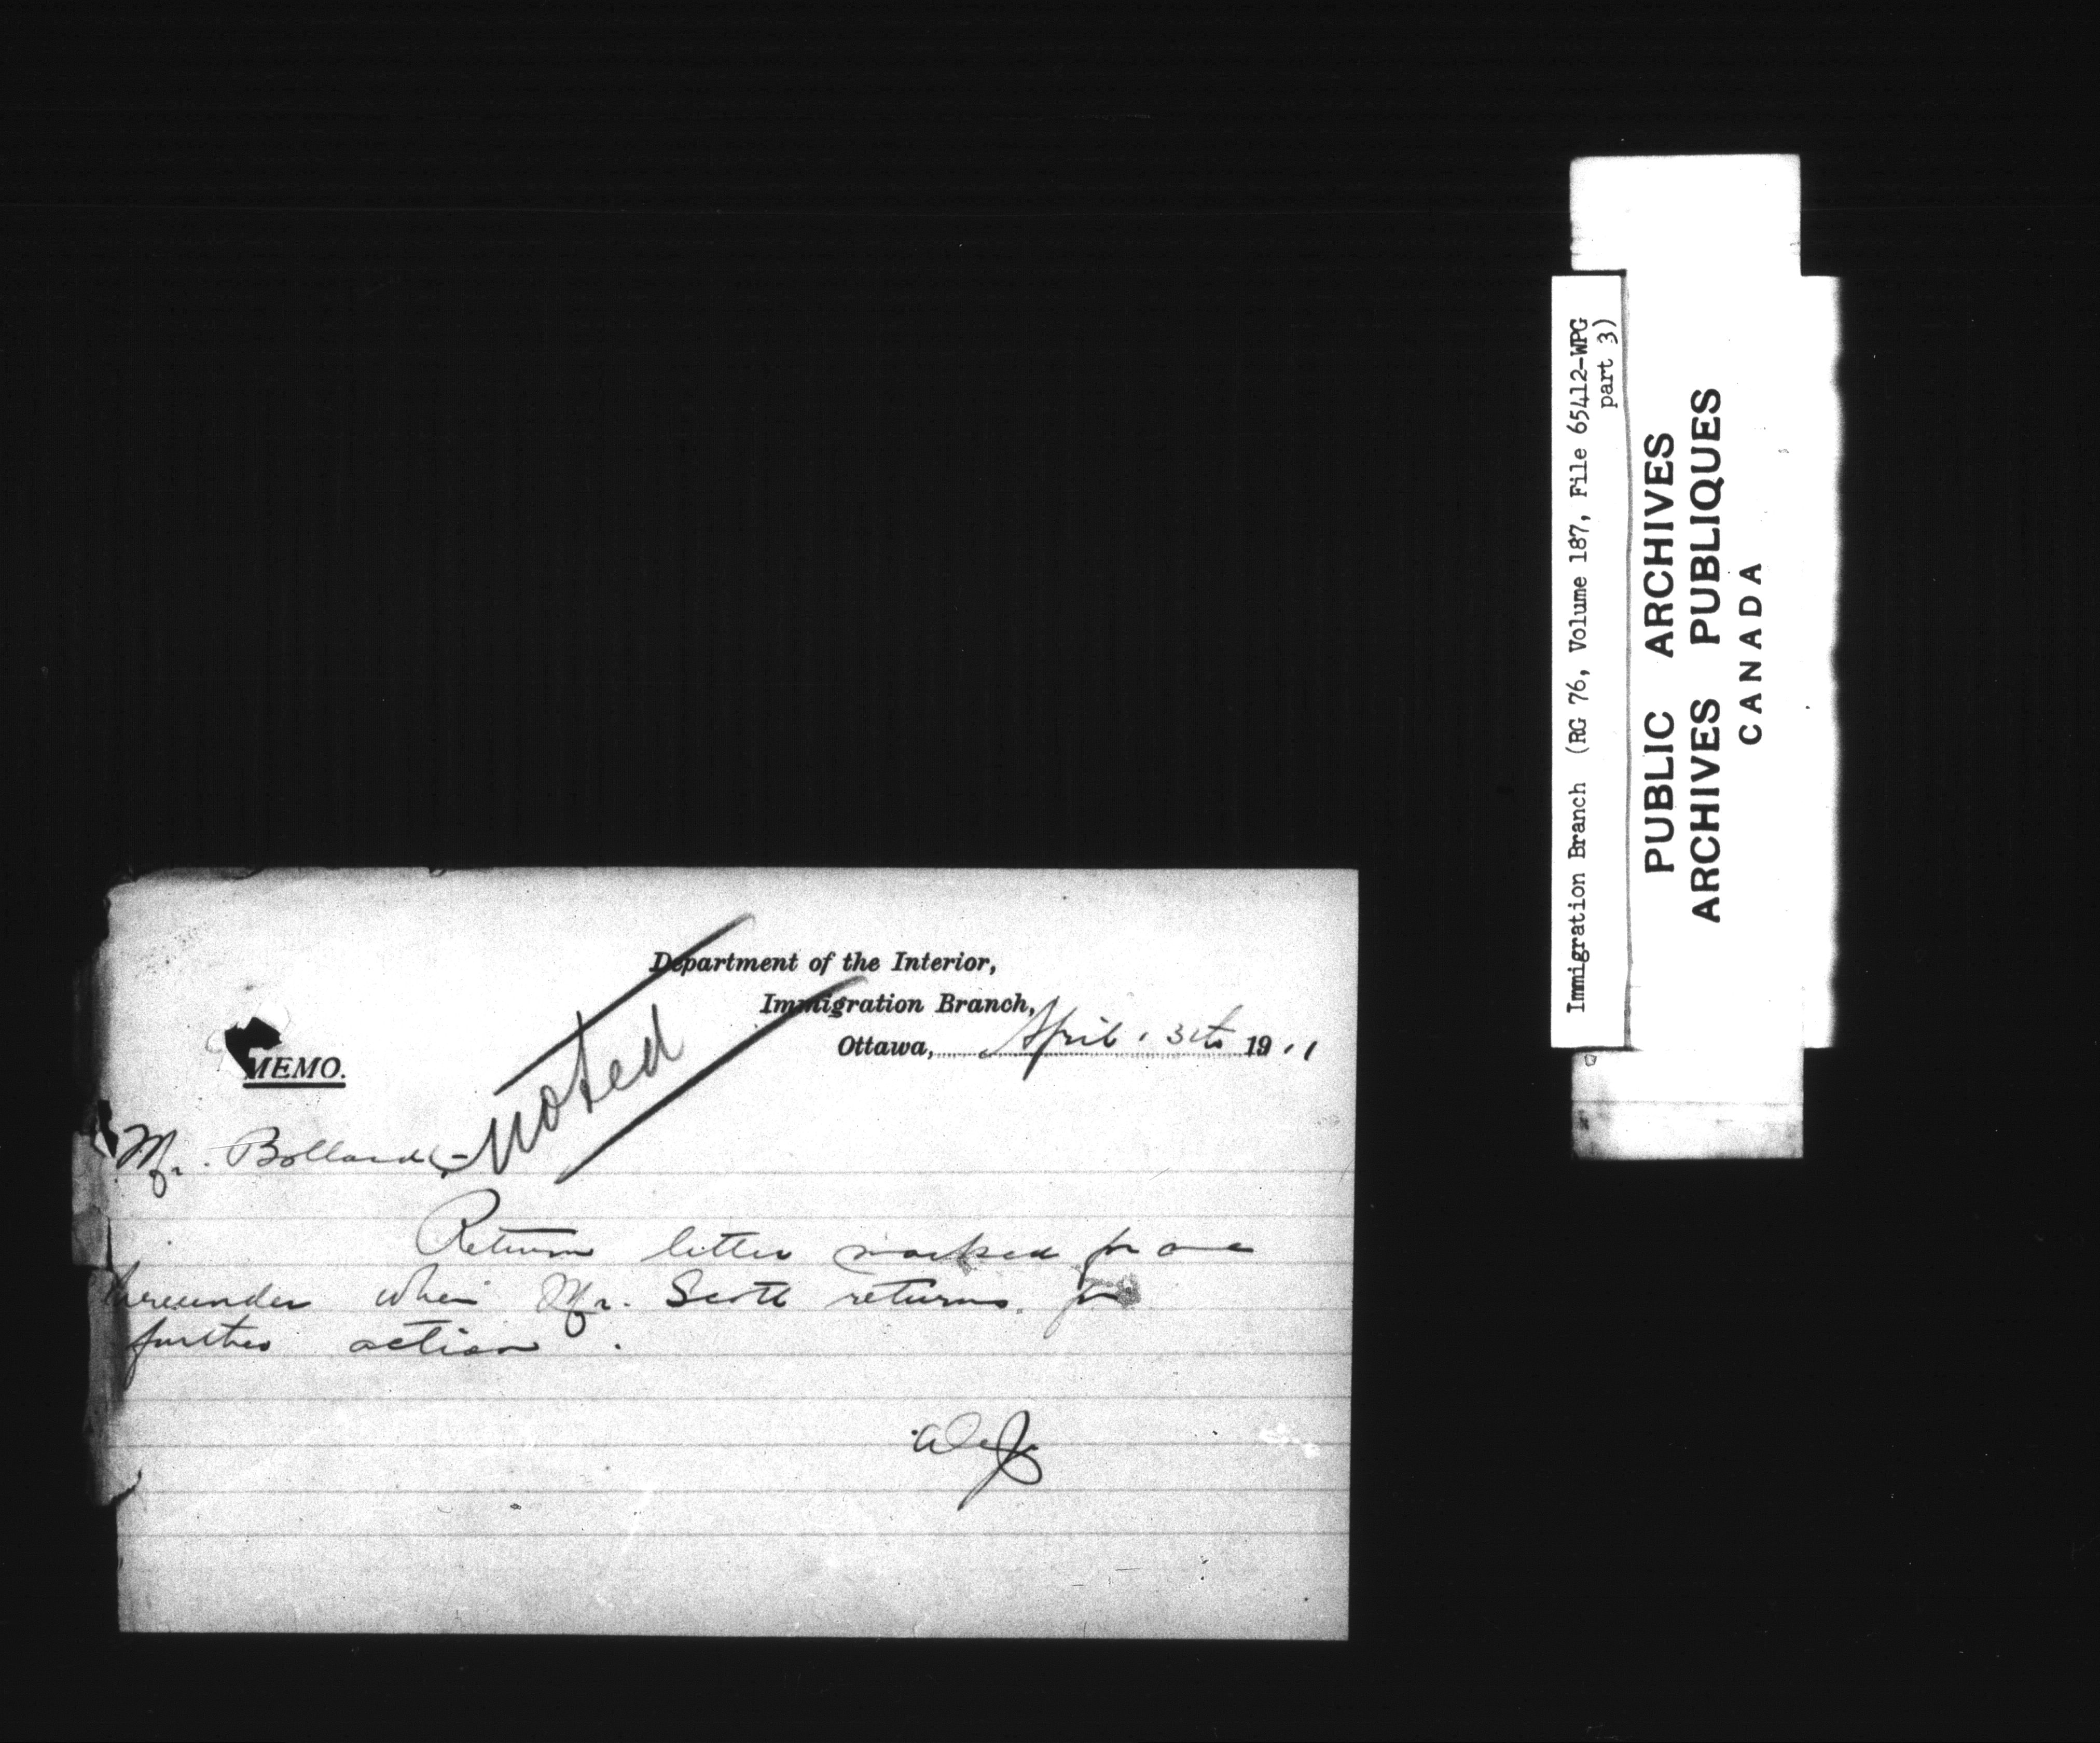 Department of the Interior,
Immigration Branch,
Ottawa, April 1911
MEMO.
noted
Mr. Bollard,-
Return letter marked for
hereunder when Mr. Scott returns for
further action.
Immigration Branch (RG 76, Volume 187, File 65412-WPG
part 3)
PUBLIC ARCHIVES
ARCHIVES PUBLIQUES
CANADA